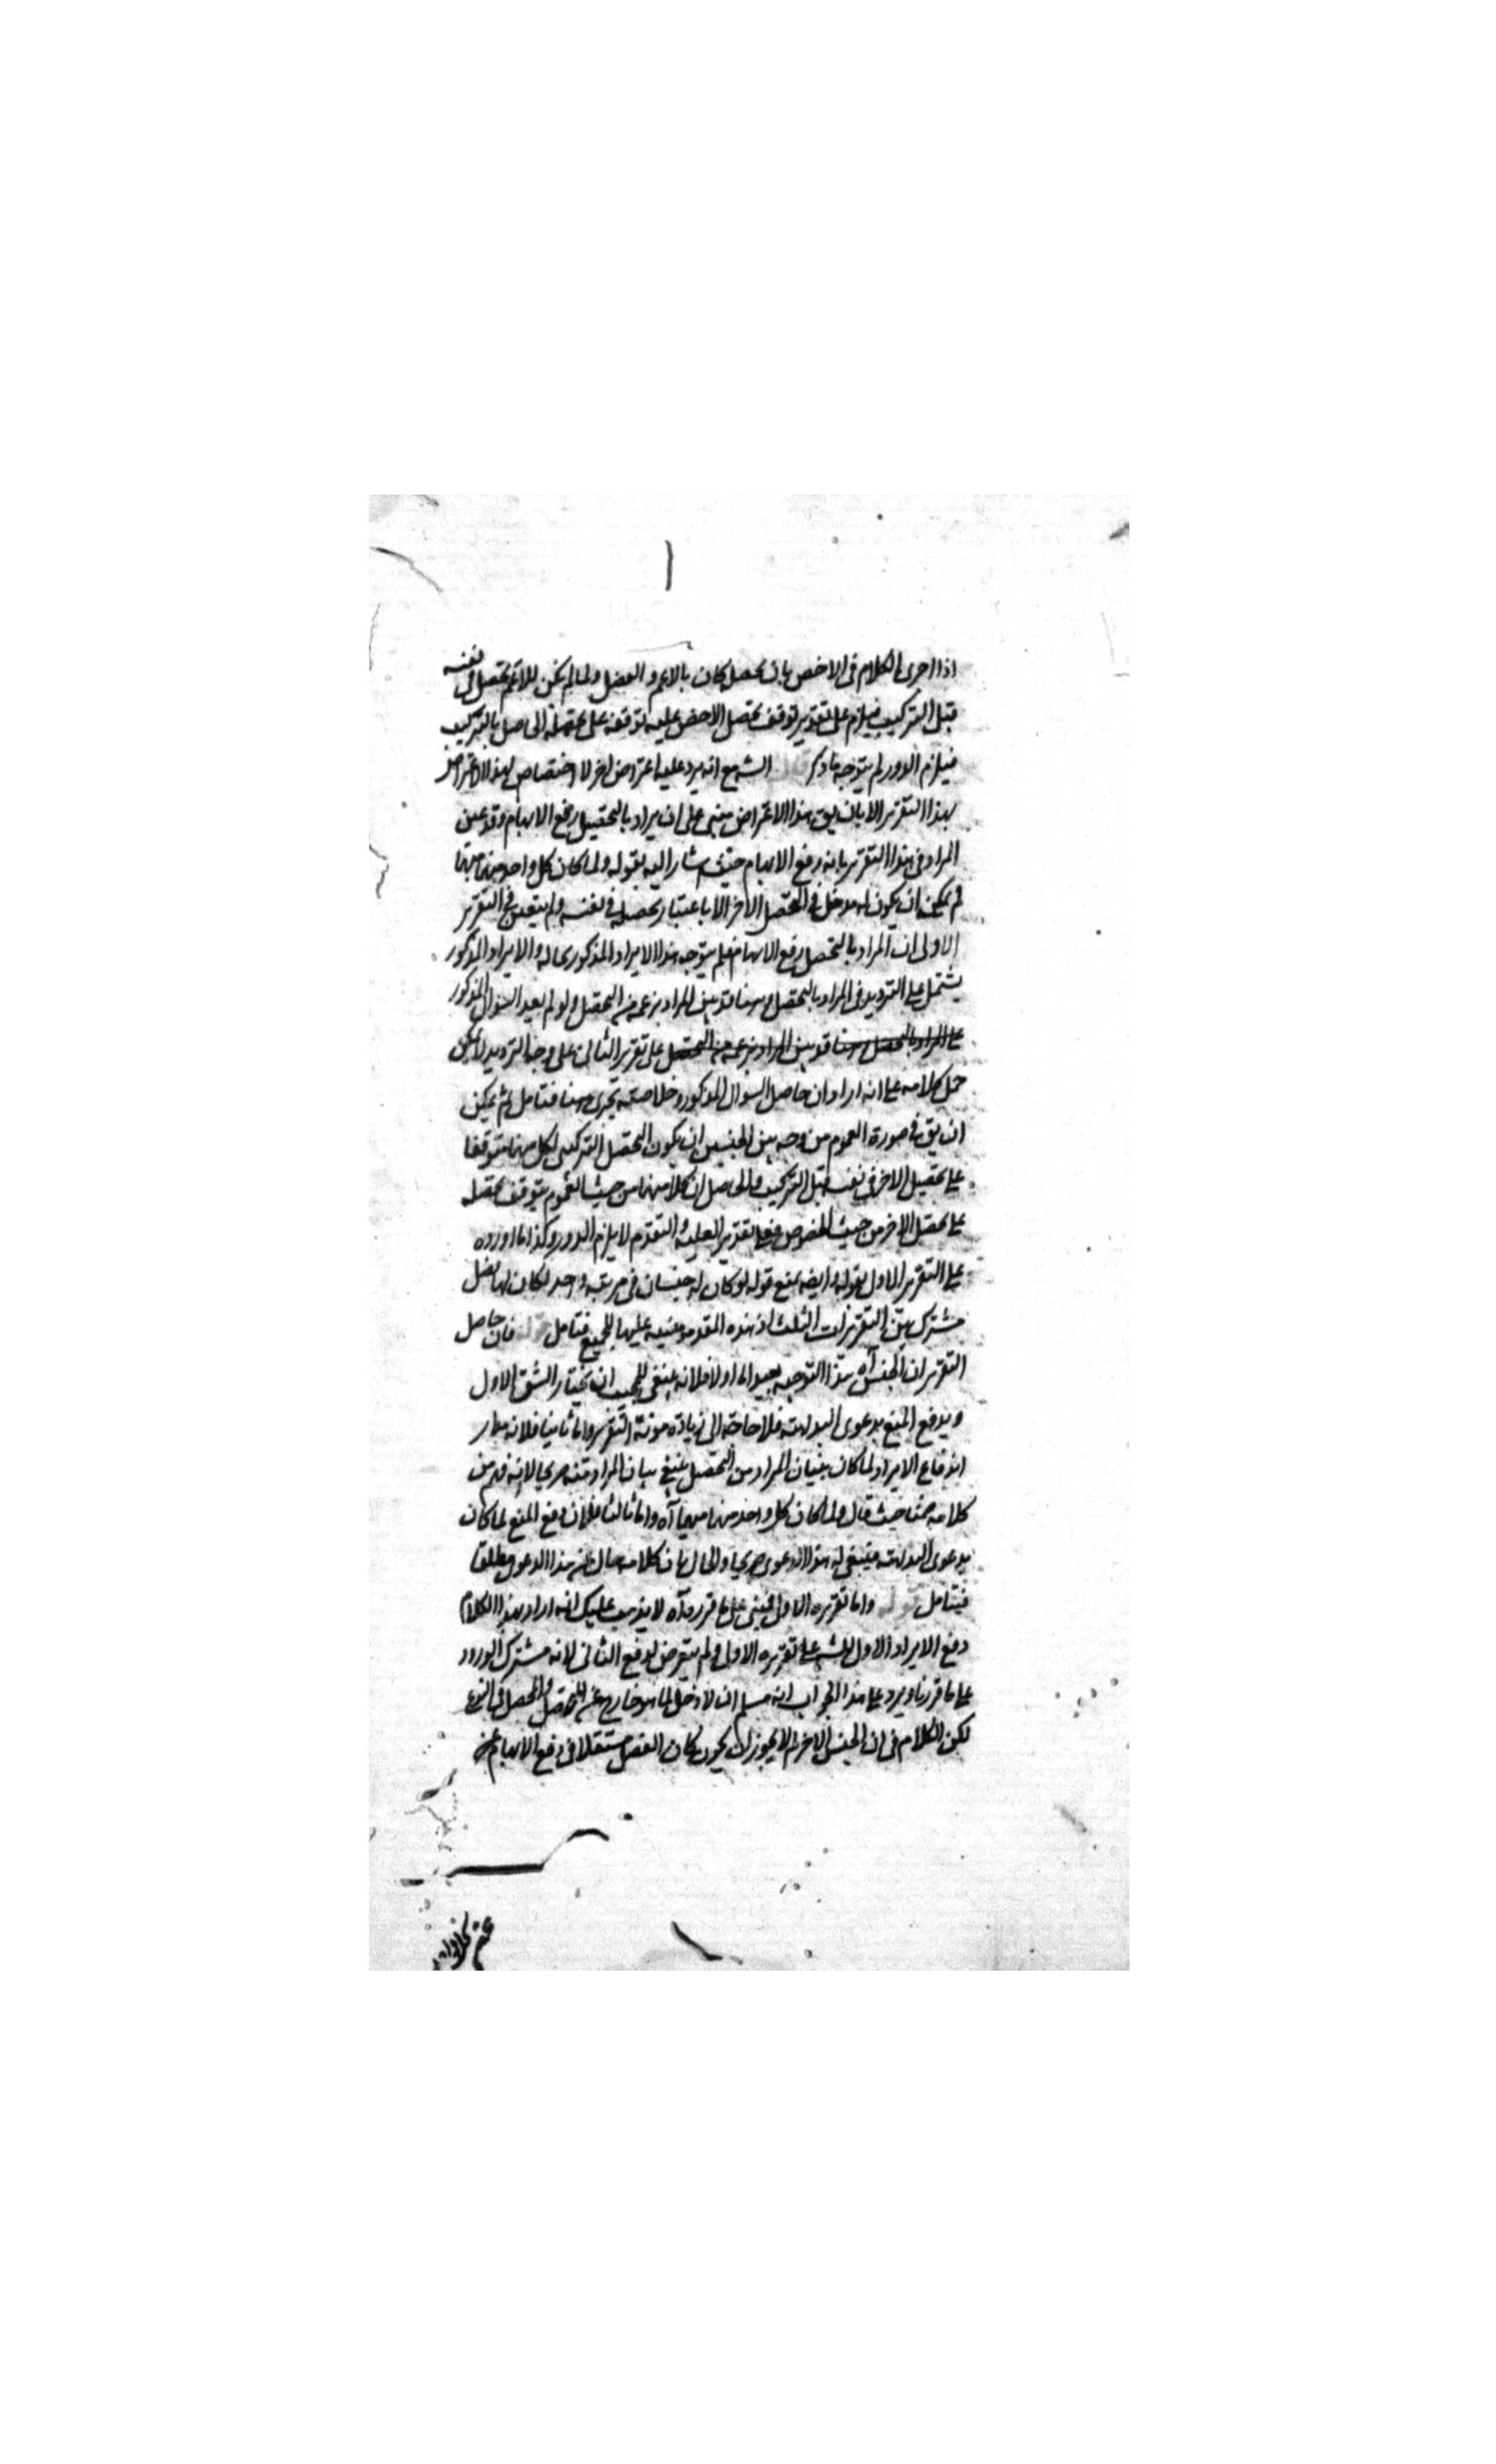 اذا اجرى الكلام فى الاخص بان تحصله كان بالاعم والفصل ولما لم يكن للاعم تحصل فى نفسه
قبل التركيب فيلزم على تقدير توقف تحصل الاخص عليه توقفه على تحصله الحاصل بالتركيب
فيلزم الدور لم يتوجه ما ذكر قال الش مع انه يرد عليه اعتراض اخر لا اختصاص لهذا الاعتراض
بهذا التقرير الا بان يق هذا الاعتراض مبنى على ان يراد بالتحصيل رفع الابهام وقد عين
المراد فى هذا التقرير بانه رفع الابهام حيث اشار اليه بقوله ولما كان كل واحد منهما مبهما
لم يمكن ان يكون له مدخل فى تحصل الاخر الا باعتبار تحصله فى نفسه ولم يتعين فى التقرير
الاول ان المراد بالتحصل رفع الابهام فلم يتوجه هذا الايراد المذكور بحاله والايراد المذكور
يشتمل على الترديد فى المراد بالتحصل وهنا قد بين المراد بزعمه من التحصل ولو لم يعد السوال المذكور
على تقرير الثانى على وجه الترديد لامكن
حمل كلامه على انه اراد ان حاصل السوال المذكور وخلاصته تجرى هنا فتامل ثم يمكن
ان يق فى صورة العموم من وجه بين الجنسين ان يكون التحصل التركيبى لكل منهما متوقفا
على تحصيل الاخر فى نفسه قبل التركيب والحاصل ان كلا منهما من حيث العموم يتوقف تحصله
على تحصل الاخر من حيث الخصوص فعلى تقدير العلية والتقدم لا يلزم الدور وكذا ما اورده
على التقرير الاول بقوله وايضه نمنع قوله لو كان له جنسان فى مرتبة واحد لكان لهما فصل
مشترك بين التقريرات الثلث اذ هذه المقدمة مبنية عليها للجميع فتامل قوله فان حاصل
التقرير ان الجنس آه هذا التوجيه بعيد اما اولا فلانه ينبغى للمجيب ان يختار الشق الاول
ويدفع المنع بدعوى البداهة فلا حاجة الى زيادة مونة التقرير واما ثانيا فلانه مدار
اندفاع الايراد لما كان ببيان المراد من التحصل ينبغى بيان المراد منه صريحا لا انه فهم من
كلامه ضمنا حيث قال ولما كان كل واحد منهما مبهما آه واما ثالثا فلان دفع المنع لما كان
بدعوى البداهة فينبغى له هذا الدعوى صريحا والحال ان كلامه خال عن هذا الدعوى مطلقا
فيتامل قوله واما تقريره الاول فمبنى على ما قرره آه لا يذهب عليك انه اراد بهذا الكلام
دفع الايراد الاول للش على تقريره الاول ولم يتعرض لدفع الثانى لانه مشترك الورود
على ما قررنا ويرد على هذا الجواب انه مسلم ان لا دخل لما هو خارج عن المحصل والمحصل فى النوع
لكن الكلام فى ان الجنس الاخر لم لا يجوز ان يكون كان الفصل مستقلا فى رفع الابهام عنه